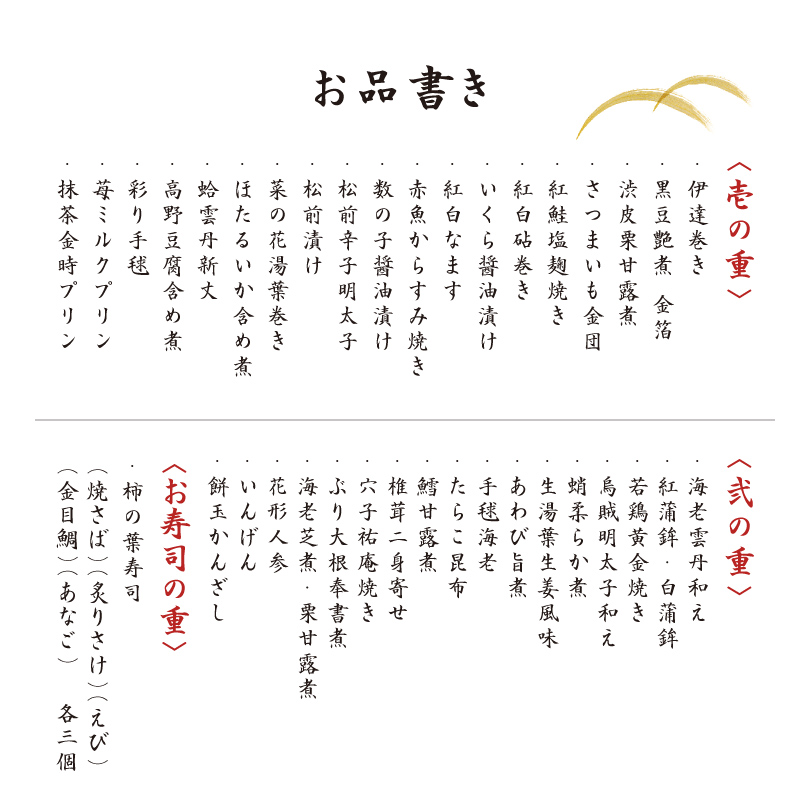 お品書き
〈壱の重〉
・伊達巻き
・黒豆艶煮 金箔
・渋皮栗甘露煮
・さつまいも金団
・紅鮭塩麹焼き
・紅白砧巻き
・いくら醤油漬け
・紅白なます
・赤魚からすみ焼き
・数の子醤油漬け
・松前辛子明太子
・松前漬け
・菜の花湯葉巻き
・ほたるいか含め煮
・蛤雲丹新丈
・高野豆腐含め煮
・彩り手毬
・苺ミルクプリン
・抹茶金時プリン
〈弐の重〉
・海老雲丹和え
・紅蒲鉾・白蒲鉾
・若鶏黄金焼き
・烏賊明太子和え
・蛸柔らか煮
・生湯葉生姜風味
・あわび旨煮
・手毬海老
・たらこ昆布
・鱈甘露煮
・椎茸二身寄せ
・穴子祐庵焼き
・ぶり大根奉書煮
・海老芝煮・栗甘露煮
・花形人参
・いんげん
・餅玉かんざし
〈お寿司の重〉
・柿の葉寿司
（焼さば）（炙りさけ）（えび）
（金目鯛）（あなご） 各三個